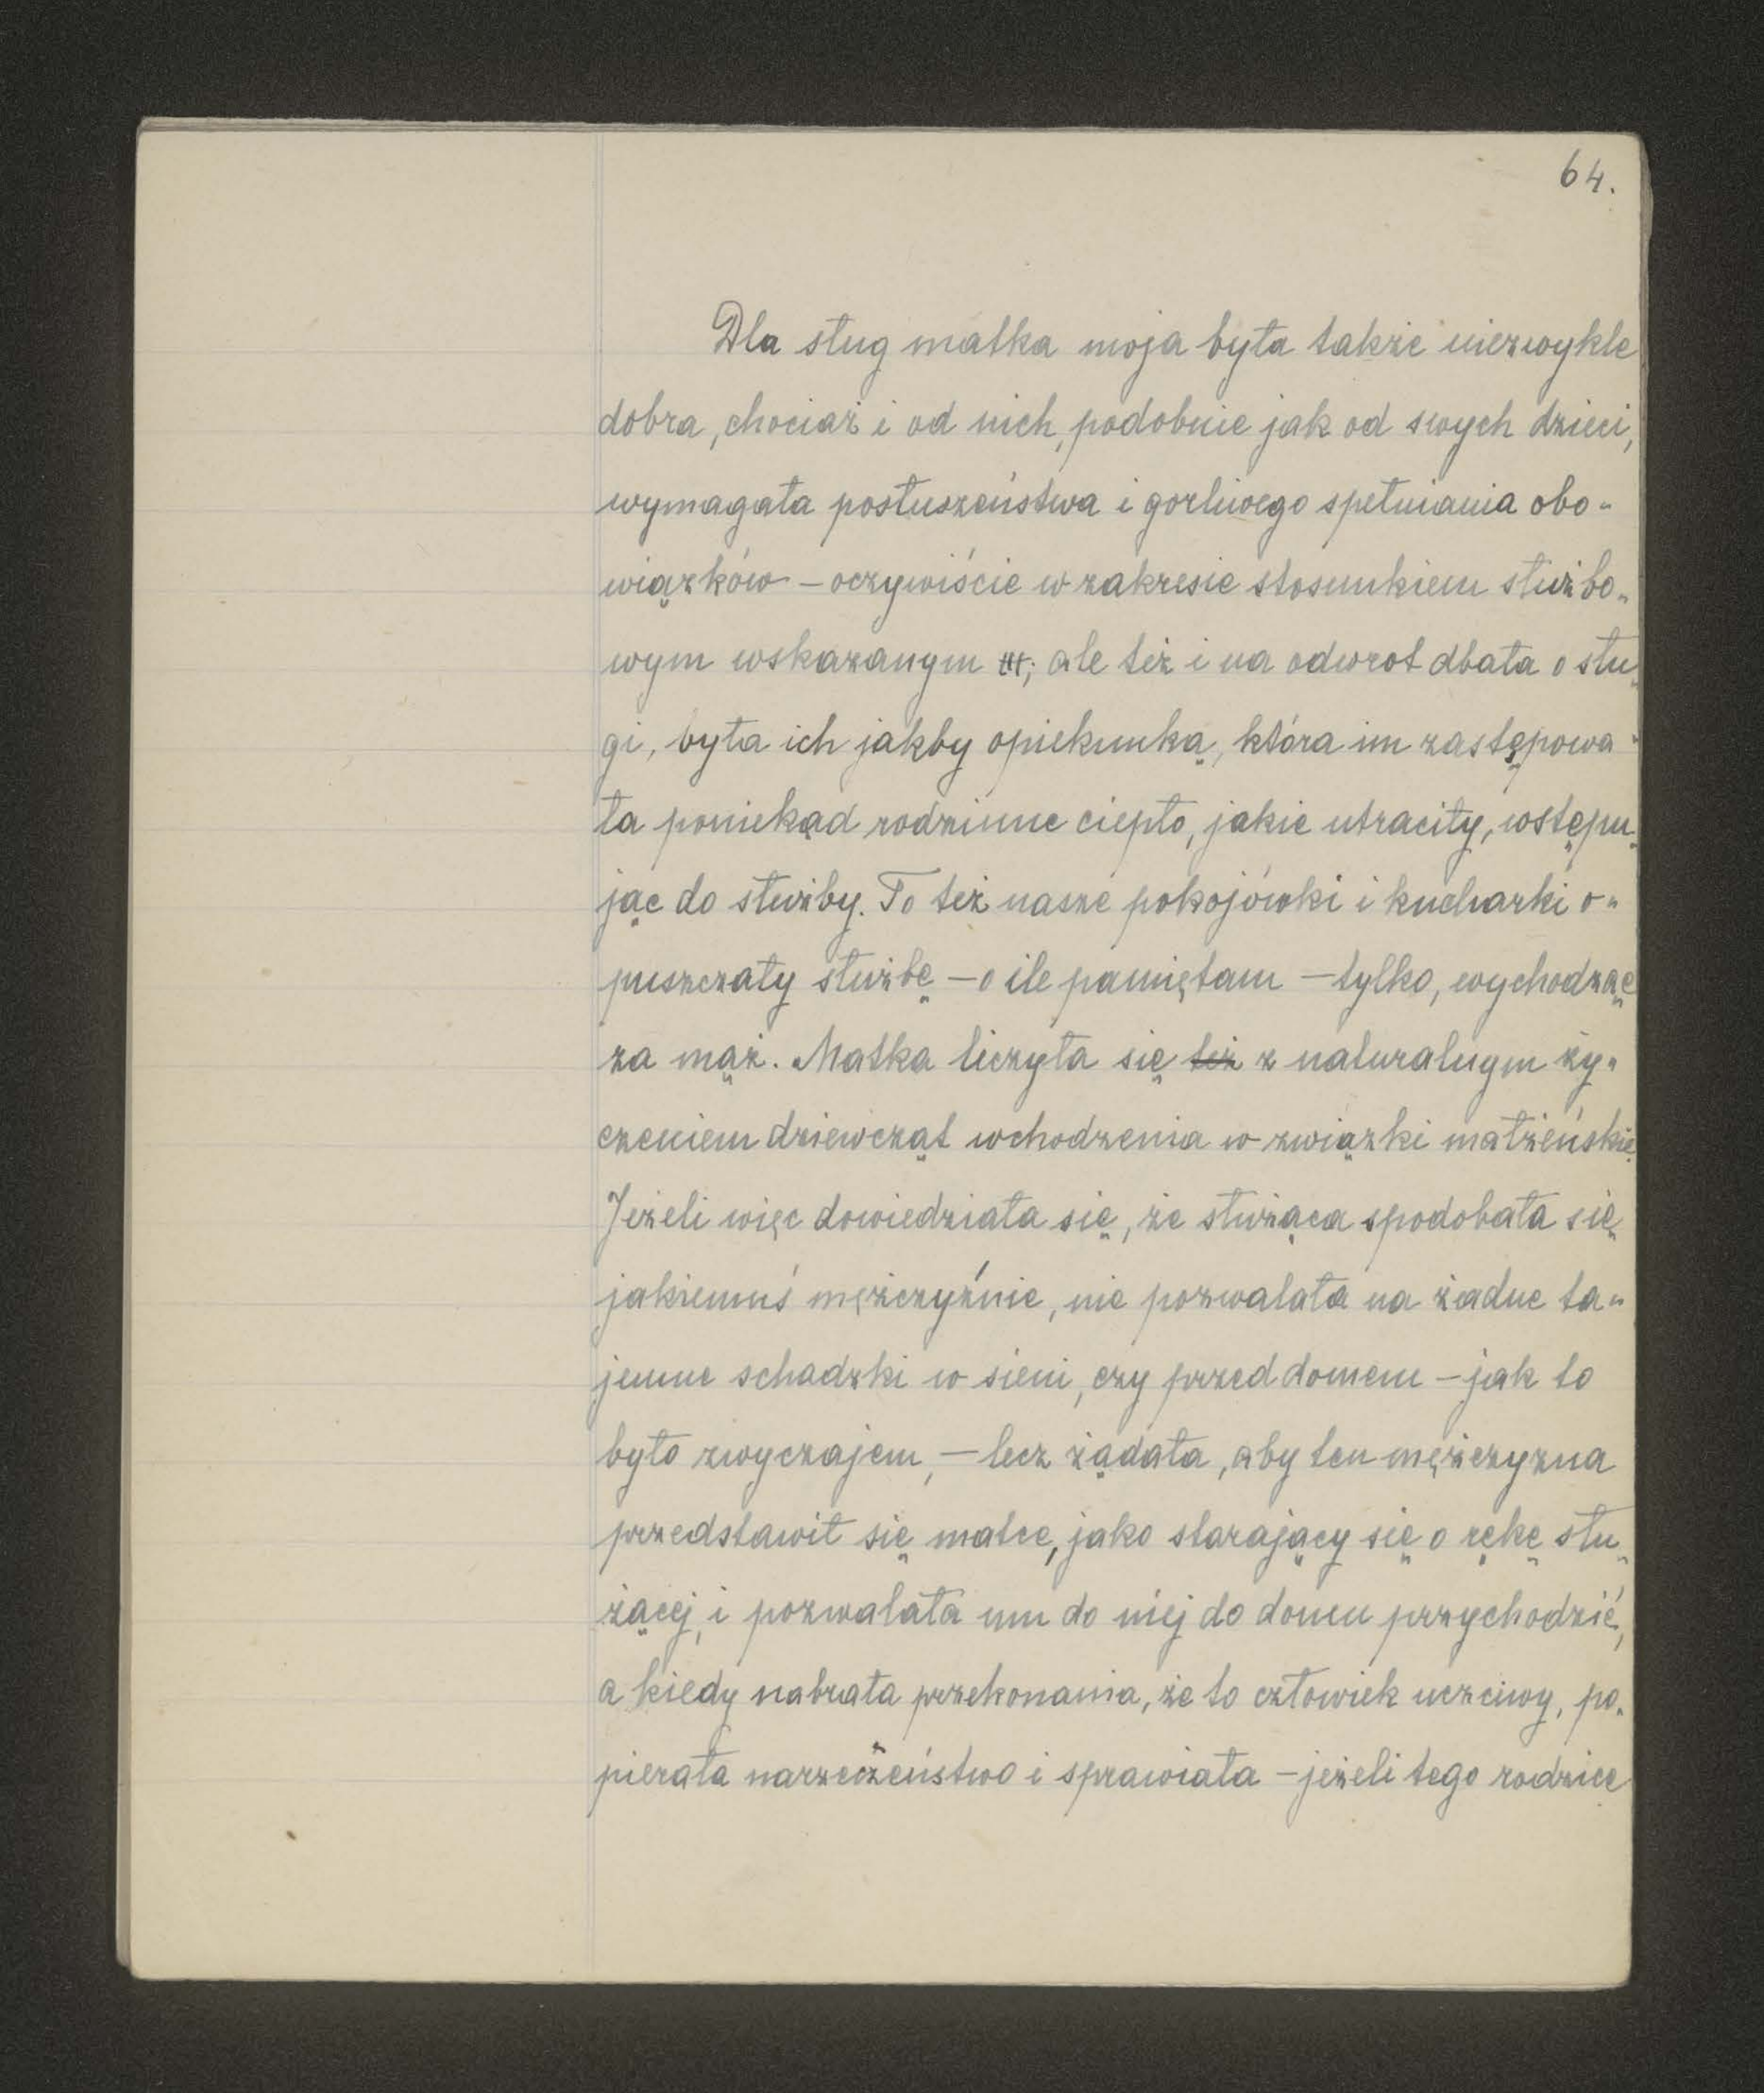 64.
Dla sług matka moja była także niezwykle
dobra, chociaż i od nich, podobnie jak od swych dzieci,
wymagała posłuszeństwa i gorliwego spełniania obo-
wiązków – oczywiście w zakresie stosunkiem służbo-
wym wskazanym ; ale też i na odwrot dbała o słu-
gi, była ich jakby opiekunką, która im zastępowa-
ła poniekąd rodzinne ciepło, jakie utraciły, wstępu-
jąc do służby. To też nasze pokojówki i kucharki o-
puszczały służbę – o ile pamiętam – tylko, wychodząc
za mąż. Matka liczyła się też z naturalnym ży-
czeniem dziewcząt wchodzenia w związki małżeńskie.
Jeżeli więc dowiedziała się, że służąca spodobała się
jakiemuś mężczyźnie, nie pozwalała na żadne ta-
jemne schadzki w sieni, czy przed domem – jak to
było zwyczajem, – lecz żądała, aby ten mężczyzna
przedstawił się matce, jako starający się o rękę słu-
żącej, i pozwalała mu do niej do domu przychodzić,
a kiedy nabrała przekonania, że to człowiek uczciwy, po-
pierała narzeczeństwo i sprawiała – jeżeli tego rodzice